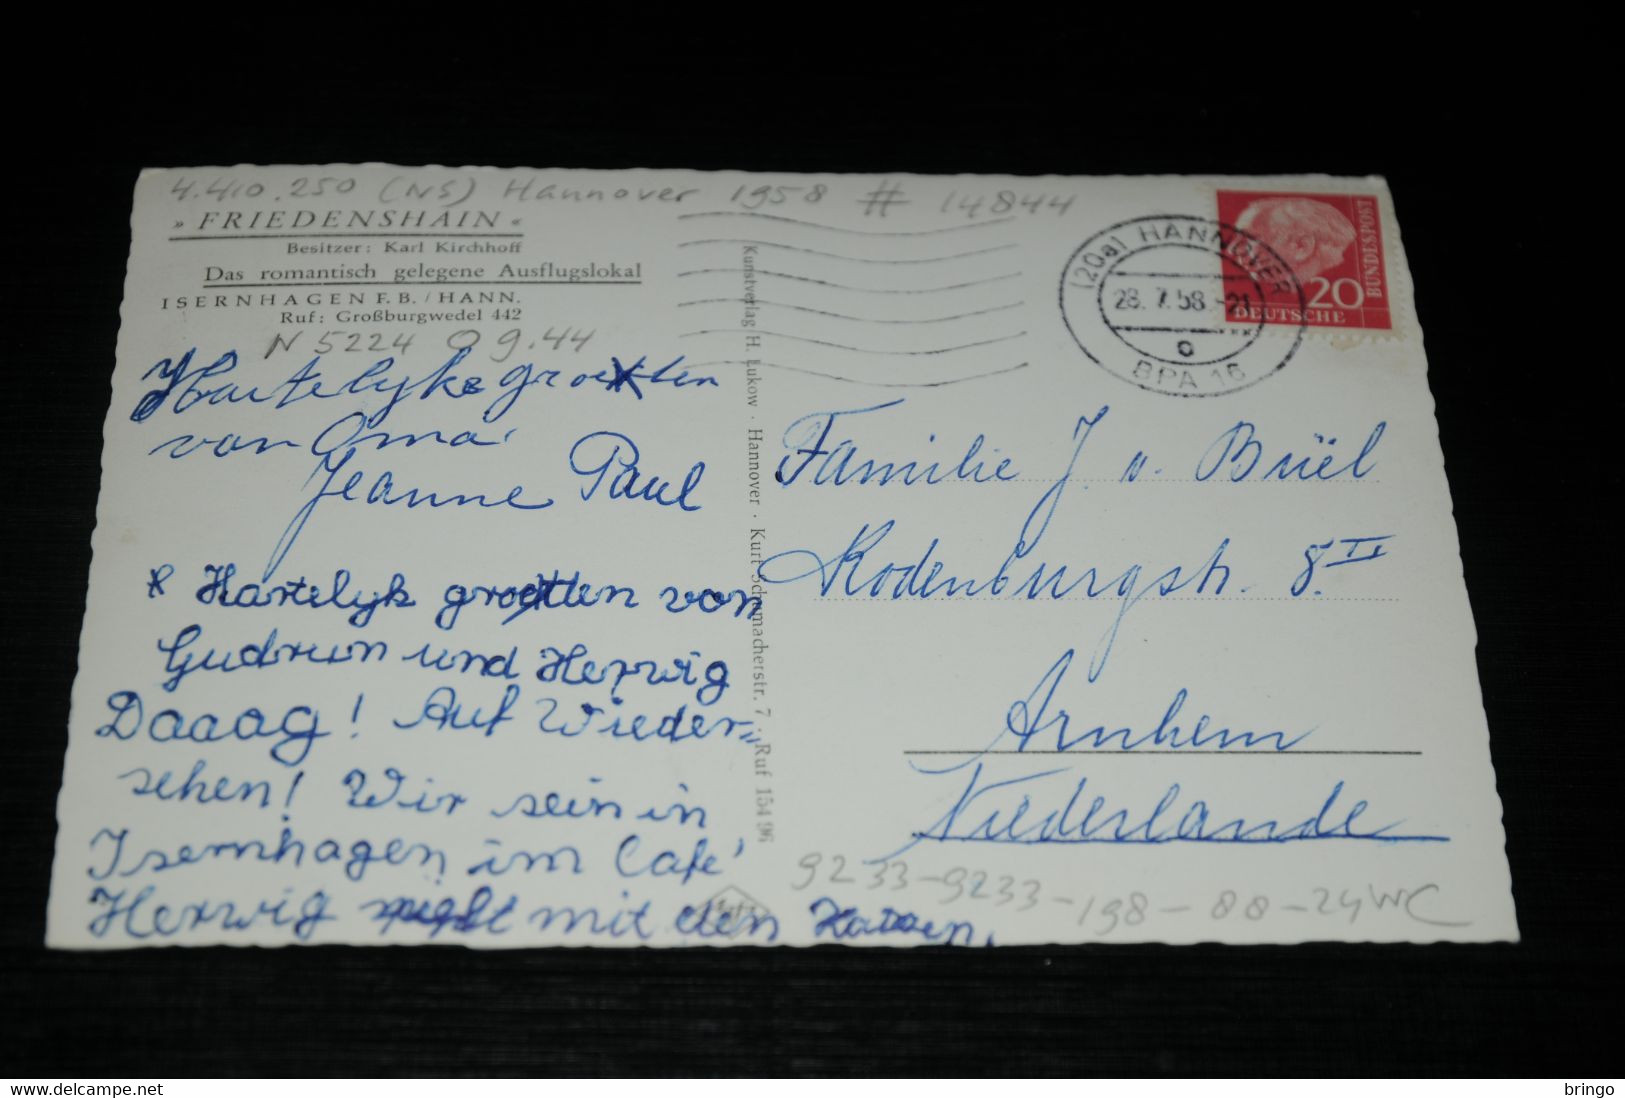 4.410.250 (NS) Hannover 1958 # 14844
» FRIEDENSHAIN «
Besitzer: Karl Kirchhoff
Das romantisch gelegene Ausflugslokal
ISERNHAGEN F. B. / HANN.
Ruf: Großburgwedel 442
N 5224 O 9.44
Hartelyke groeten
van Oma.
Jeanne Paul
* Hartelyk groeten von
Gudrun und Herwig
Daaag! Auf Wieder„
sehen! Wir sein in
Isernhagen im Café
Herwig mit den
Kunstverlag H. Lukow · Hannover · Kurt-Schumacherstr. 7 · Ruf 154 96
(20a) HANNOVER
28.7.58.-21
o
BPA 16
20
DEUTSCHE
BUNDESPOST
Familie J. v. Brüel
Rodenburgstr. 8.II
Arnhem
Niederlande
9233-9233-198-88-24WC
delcampe.net
bringo